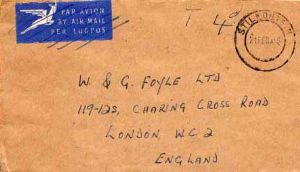 PAR AVION
BY AIR MAIL
PER LUGPOS
T 4
STILFONTEIN
W & G. FOYLE LTD
119-125, CHARING CROSS ROAD
LONDON. W.C. 2
ENGLAND